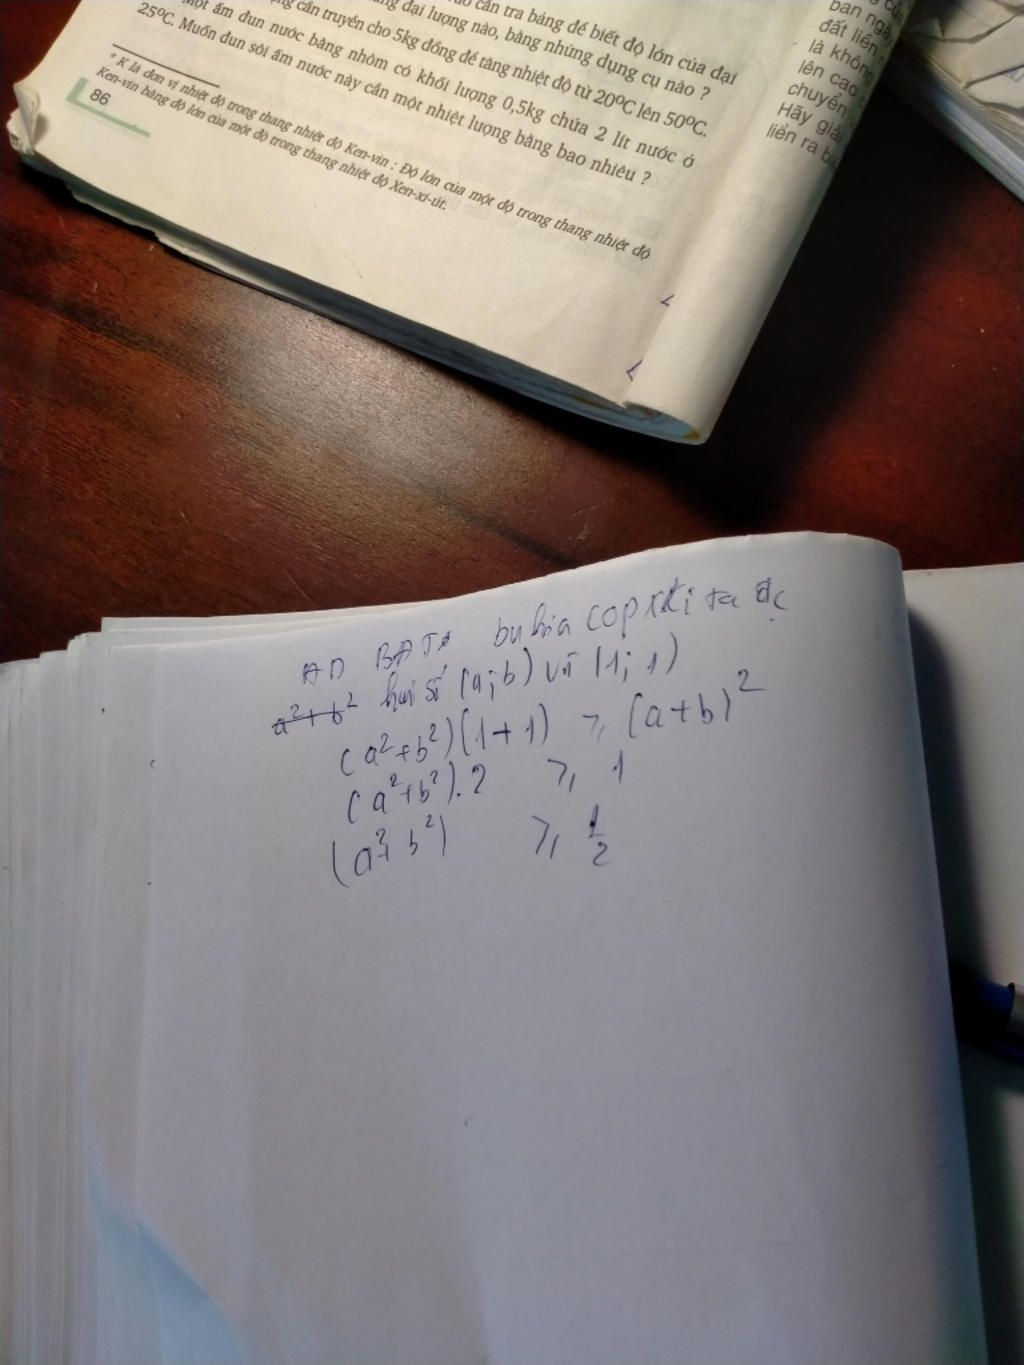 cần tra bảng để biết độ lớn của đại
đại lượng nào, bằng những dụng cụ nào ?
cần truyền cho 5kg đồng để tăng nhiệt độ từ 20°C lên 50°C.
Một ấm đun nước bằng nhôm có khối lượng 0,5kg chứa 2 lít nước ở
25°C. Muốn đun sôi ấm nước này cần một nhiệt lượng bằng bao nhiêu ?
* K là đơn vị nhiệt độ trong thang nhiệt độ Ken-vin : Độ lớn của một độ trong thang nhiệt độ
Ken-vin bằng độ lớn của một độ trong thang nhiệt độ Xen-xi-út.
86
ban ngày
đất liền
là không
lên cao
chuyển
Hãy giải
liền ra
AD BĐT bunhia copxki ta đc
a²+b² hai số (a;b) và (1;1)
(a²+b²)(1+1) ≥ (a+b)²
(a²+b²).2 ≥ 1
(a²+b²) ≥ 1/2